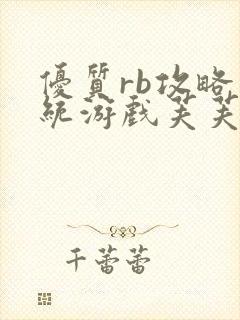 優質rb攻略
統游戲芙芙
千蕾蕾